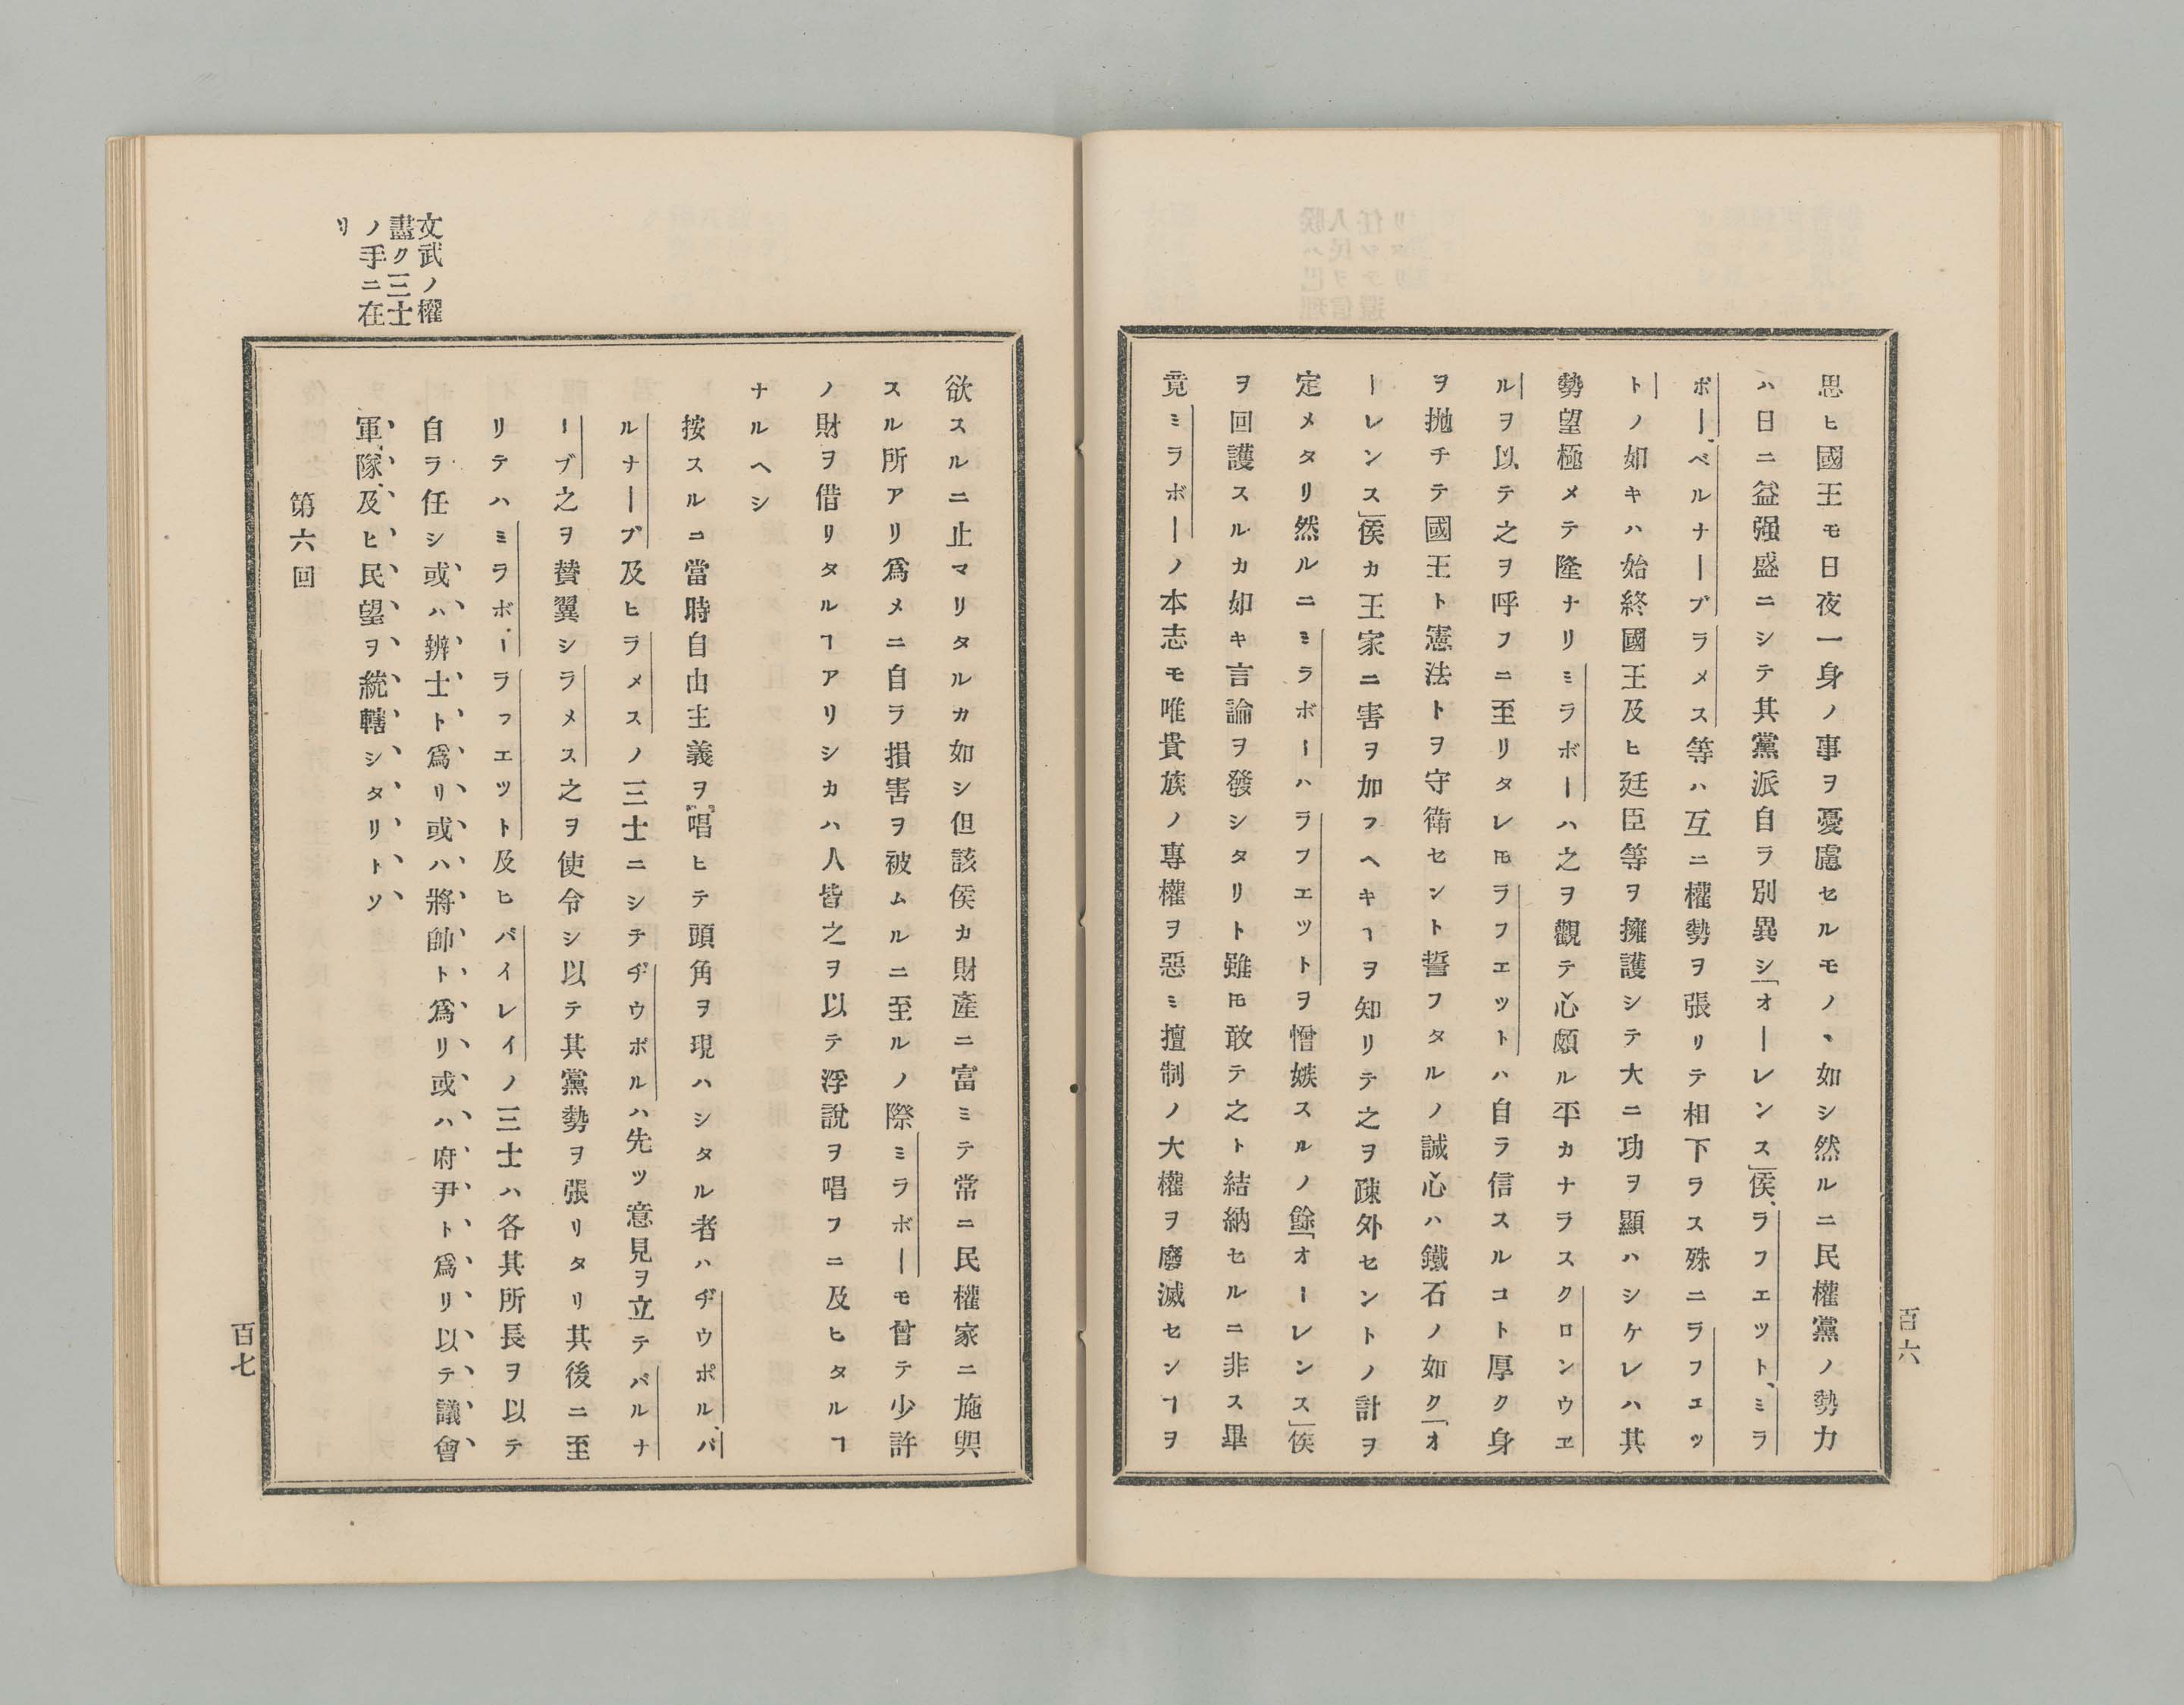 思ヒ國王モ日夜一身ノ事ヲ憂慮セルモノヽ如シ然ルニ民權黨ノ勢力
ハ日ニ益强盛ニシテ其黨派自ラ別異シ「オーレンス」侯、ラフエツト、ミラ
ボー、ベルナーブラメス等ハ互ニ權勢ヲ張リテ相下ラス殊ニラフエツ
トノ如キハ始終國王及ヒ廷臣等ヲ擁護シテ大ニ功ヲ顯ハシケレハ其
勢望極メテ隆ナリミラボーハ之ヲ觀テ心頗ル平カナラスクロンウヱ
ルヲ以テ之ヲ呼フニ至リタレ𪜈ラフエツトハ自ラ信スルコト厚ク身
ヲ抛チテ國王ト憲法トヲ守衛セント誓フタルノ誠心ハ鐵石ノ如ク「オ
ーレンス」侯カ王家ニ害ヲ加フヘキヿヲ知リテ之ヲ疎外セントノ計ヲ
定メタリ然ルニミラボーハラフエツトヲ憎嫉スルノ餘「オーレンス」侯
ヲ回護スルカ如キ言論ヲ發シタリト雖𪜈敢テ之ト結納セルニ非ス畢
竟ミラボーノ本志モ唯貴族ノ專權ヲ惡ミ擅制ノ大權ヲ磨滅センヿヲ
百六
欲スルニ止マリタルカ如シ但該侯カ財產ニ富ミテ常ニ民權家ニ施與
スル所アリ爲メニ自ラ損害ヲ被ムルニ至ルノ際ミラボーモ曾テ少許
ノ財ヲ借リタルヿアリシカハ人皆之ヲ以テ浮說ヲ唱フニ及ヒタルヿ
ナルヘシ
按スルニ當時自由主義ヲ唱ヒテ頭角ヲ現ハシタル者ハヂウポル、バ
ルナーブ及ヒラメスノ三士ニシテヂウポルハ先ツ意見ヲ立テバルナ
ーブ之ヲ贊翼シラメス之ヲ使令シ以テ其黨勢ヲ張リタリ其後ニ至
リテハミラボー、ラフエツト及ヒバイレイノ三士ハ各其所長ヲ以テ
自ラ任シ或ハ辨士ト爲リ或ハ將帥ト爲リ或ハ府尹ト爲リ以テ議會
軍隊及ヒ民望ヲ統轄シタリトソ
第六回
文武ノ權
盡ク三士
ノ手ニ在
リ
百七